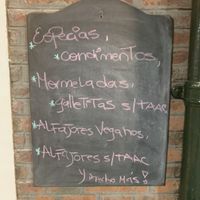 Especias,
* condimentos,
* Mermeladas,
* galletitas s/TAAC
* ALFAJORES Veganos,
* ALFAJORES s/TAAC
y mucho Más!